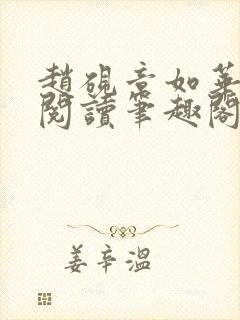 趙硯音如華
閱讀筆趣閣
姜辛溫